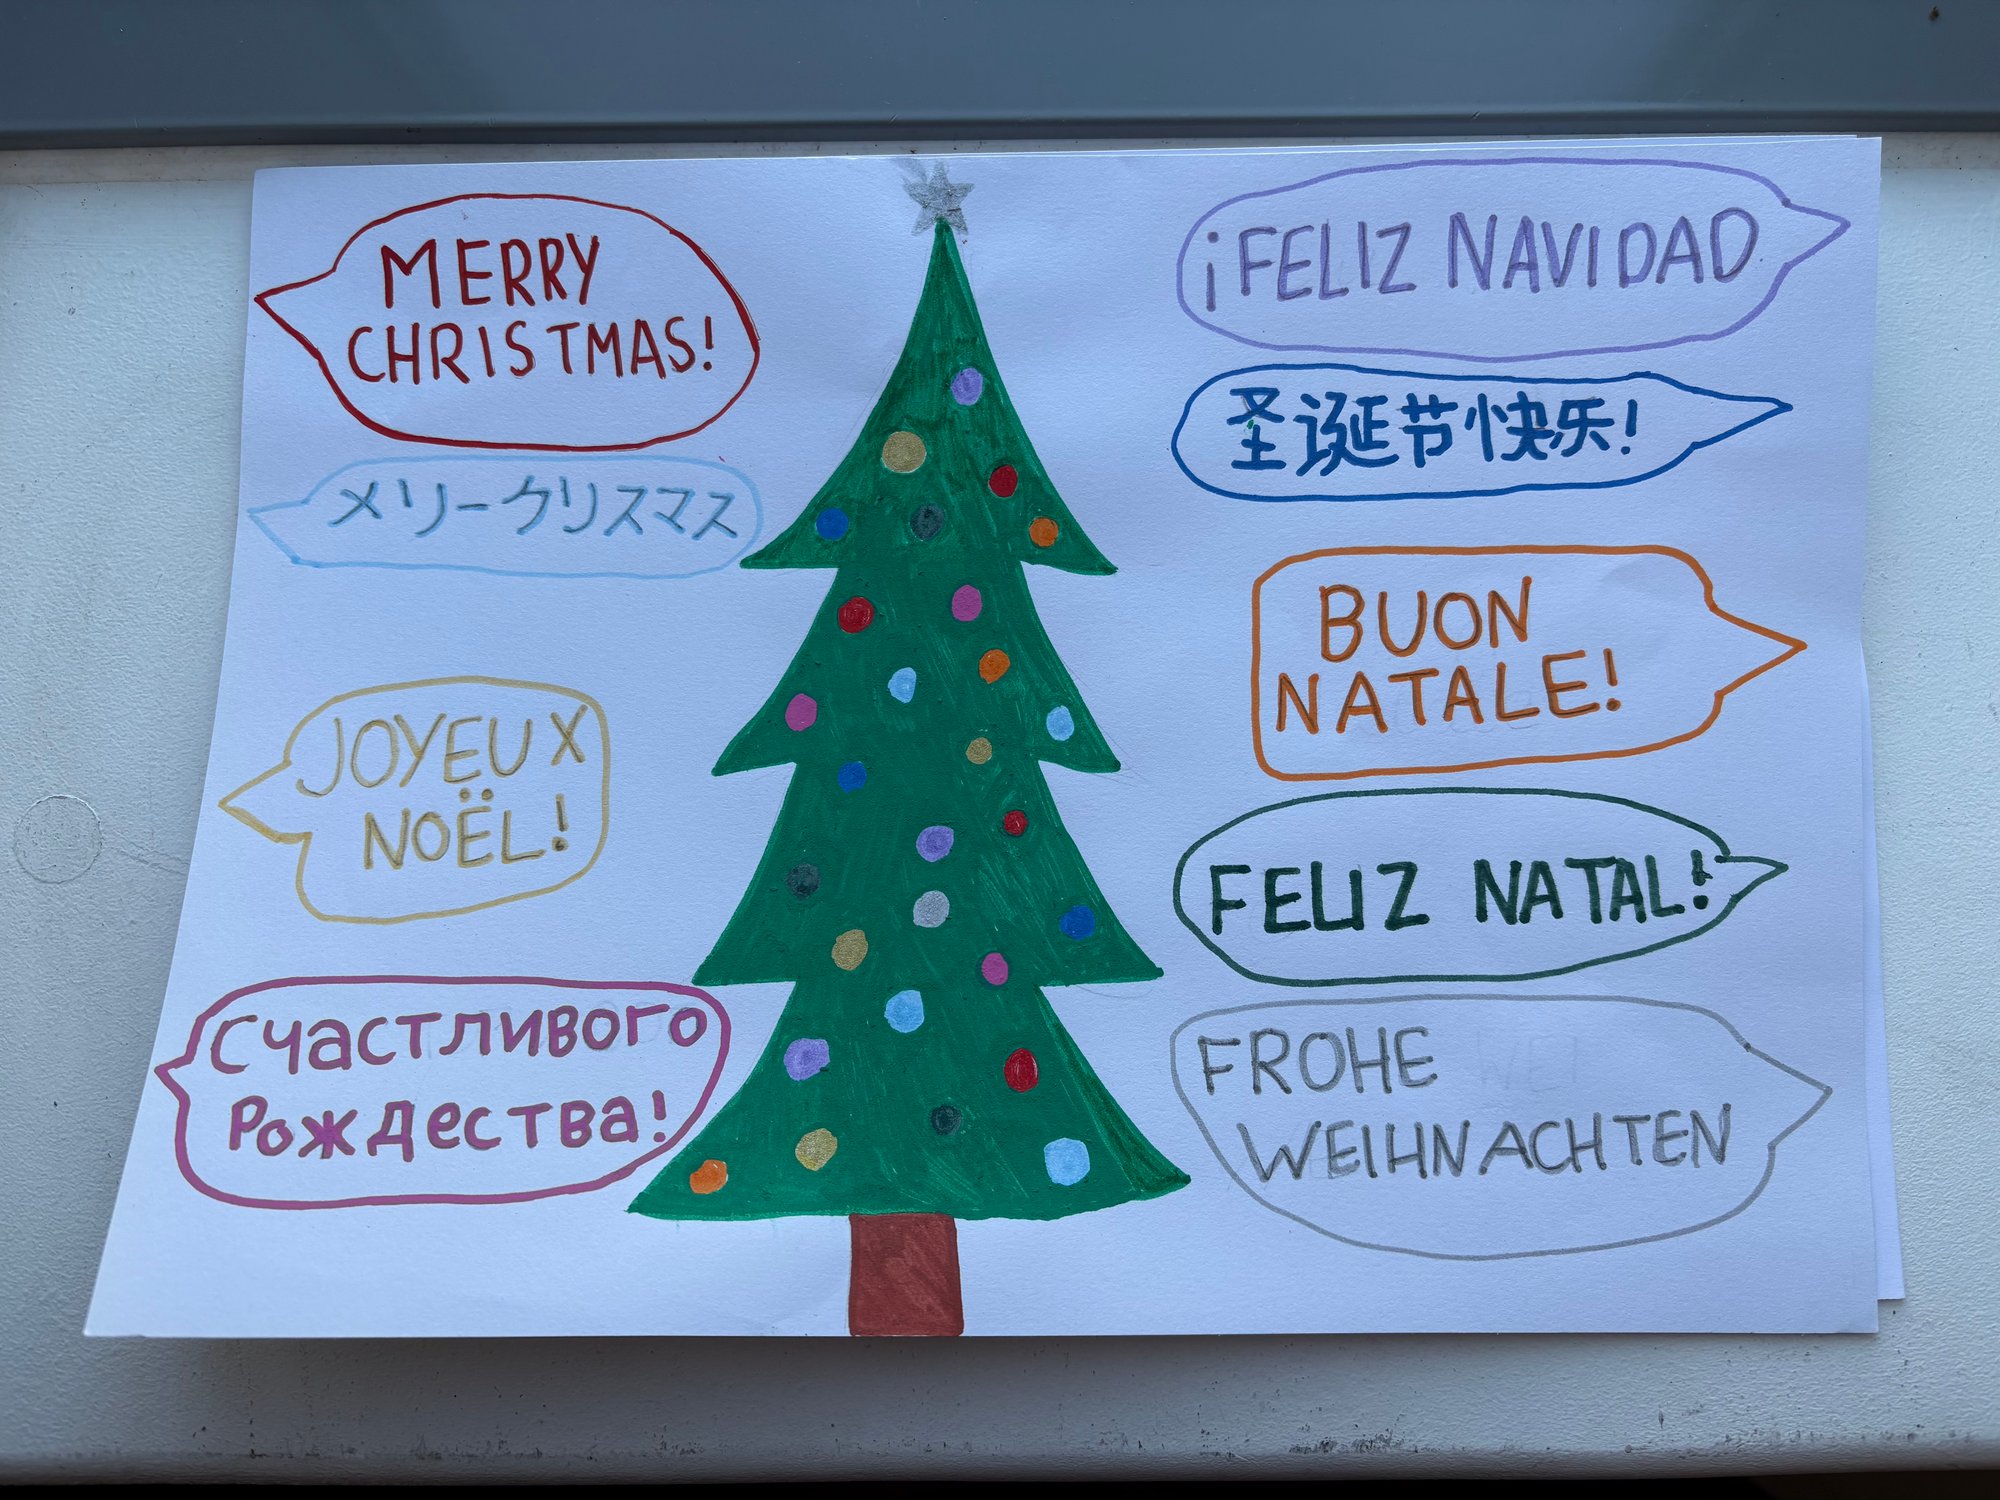 MERRY
CHRISTMAS!
メリークリスマス
JOYEUX
NOËL!
Счастливого
Рождества!
¡FELIZ NAVIDAD
圣诞节快乐!
BUON
NATALE!
FELIZ NATAL!
FROHE
WEIHNACHTEN